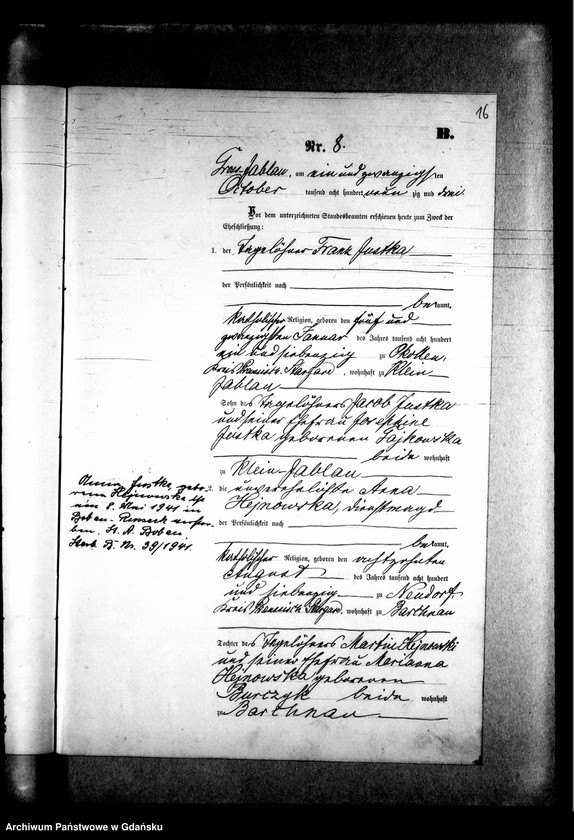 16
B.
Nr. 8.
Gross-Jablau, am ein und zwanzigsten
October tausend acht hundert neun zig und drei.
Vor dem unterzeichneten Standesbeamten erschienen heute zum Zweck der
Eheschließung:
1. der Tagelöhner Franz Justka
der Persönlichkeit nach
bekannt,
katholischer Religion, geboren den fünf und
zwanzigsten Januar des Jahres tausend acht hundert
ein und siebenzig zu Okollen,
Kreis Preussisch Stargard, wohnhaft zu Klein
Jablau
Sohn des Tagelöhners Jacob Justka
und seiner Ehefrau Josephine
Justka geborenen Gajkowska
beide wohnhaft
zu Klein-Jablau
2. die unverehelichte Anna
Hejnowska, Dienstmagd
der Persönlichkeit nach
bekannt,
katholischer Religion, geboren den achtzehnten
August des Jahres tausend acht hundert
und siebenzig zu Neudorf
Kreis Preussisch Stargard, wohnhaft zu Barthnau
Tochter des Tagelöhners Martin Hejnowski
und seiner Ehefrau Marianna
Hejnowska geborenen
Burczyk beide wohnhaft
zu Barthnau
Anna Justka, gebo-
rene Hejnowska ist
am 8. Mai 1941 in
verstor-
ben. St. A. Boben
Sterb. B. Nr. 39/1941.
Archiwum Państwowe w Gdańsku